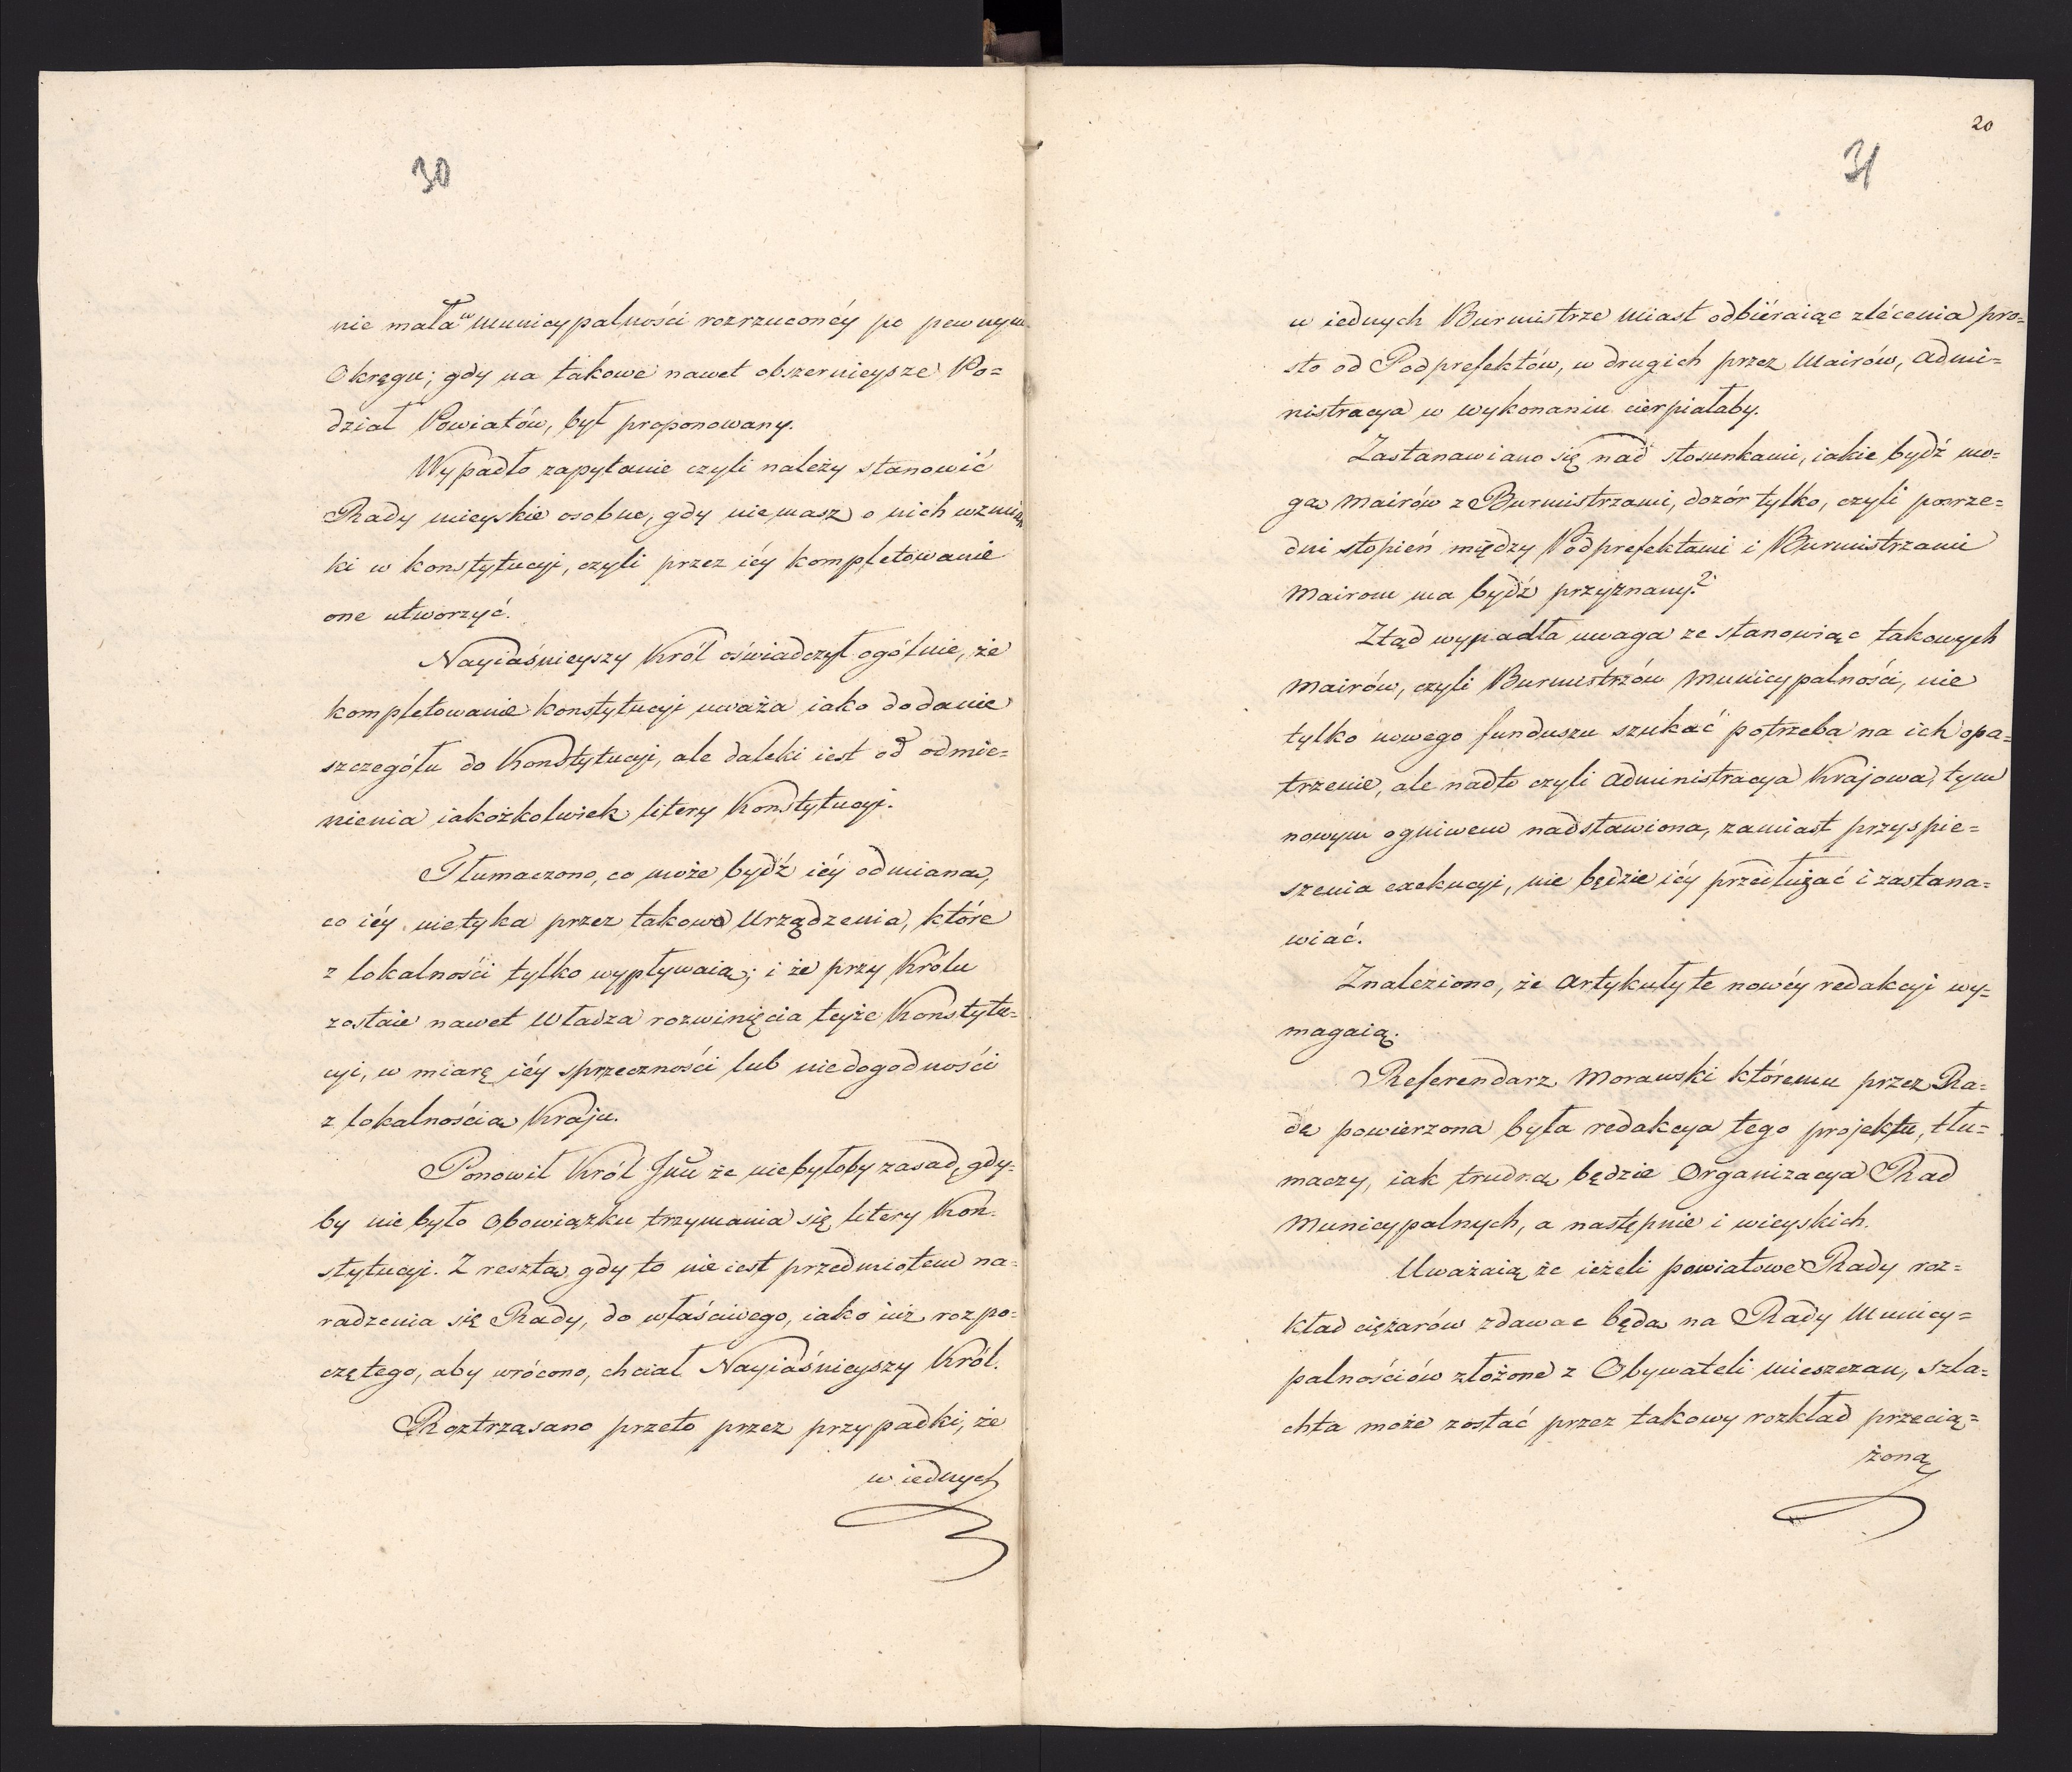 30
nie mała w Municypalności rozrzuconéy po pewnym
Okręgu; gdy na takowe nawet obszernieysze Po=
dział Powiatów, był proponowany.
Wypadło zapytanie czyli należy stanowić
Rady mieyskie osobne, gdy nie masz o nich wzmian
ki w konstytucyi, czyli przez iéy kompletowanie
one utworzyć.
Nayiaśnieyszy Król oświadczył ogólnie, że
kompletowanie konstytucyi uważa iako dodanie
szczegółu do Konstytucyi, ale daleki iest od odmie=
nienia iakożkolwiek litery Konstytucyi.
Tłumaczono, co może bydź iéy odmianą,
co iéy nietyka przez takowe Urządzenia, które
z lokalności tylko wypływaią; i że przy Królu
zostaie nawet Władza rozwinięcia teyże Konstytu=
cyi, w miarę iéy sprzeczności lub niedogodności
z lokalnością Kraju.
Ponowił Król Jmć że nie byłoby zasad, gdy=
by nie było Obowiązku trzymania się litery Kon=
stytucyi. Z resztą gdy to nie iest przedmiotem na=
radzenia się Rady, do właściwego, iako iuż rozpo=
czętego, aby wrócono, chciał Nayiaśnieyszy Król.
Roztrząsano przeto przez przypadki, że
w iednych
20
31
w iednych Burmistrze Miast odbiéraiąc zlécenia pro=
sto od Podprefektów, w drugich przez Mairów, Admi=
nistracya w wykonaniu cierpiałaby.
Zastanawiano się nad stosunkami, iakie bydź mo=
gą Mairów z Burmistrzami, dozór tylko, czyli posrze=
dni stopień między Podprefektami i Burmistrzami
Mairom ma bydź przyznany?
Ztąd wypadła uwaga ze stanowiąc takowych
Mairów, czyli Burmistrzów Municypalności, nie
tylko nowego funduszu szukać potrzeba na ich opa=
trzenie, ale nadto czyli Administracya Krajowa, tym
nowym ogniwem nadstawiona, zamiast przyspie=
szenia exekucyi, nie będzie iéy przedłużać i zastana=
wiać.
Znaleziono, że Artykuły te nowéy redakcyi wy=
magaią.
Referendarz Morawski któremu przez Ra=
dę powierzona była redakcya tego projektu, tłu=
maczy, iak trudną będzie Organizacya Rad
Municypalnych, a następnie i wieyskich.
Uważaią że ieżeli powiatowe Rady roz=
kład ciężarów zdawac będą na Rady Municy=
palnościów złożone z Obywateli mieszczan, Szla=
chta może zostać przez takowy rozkład przecią=
żoną